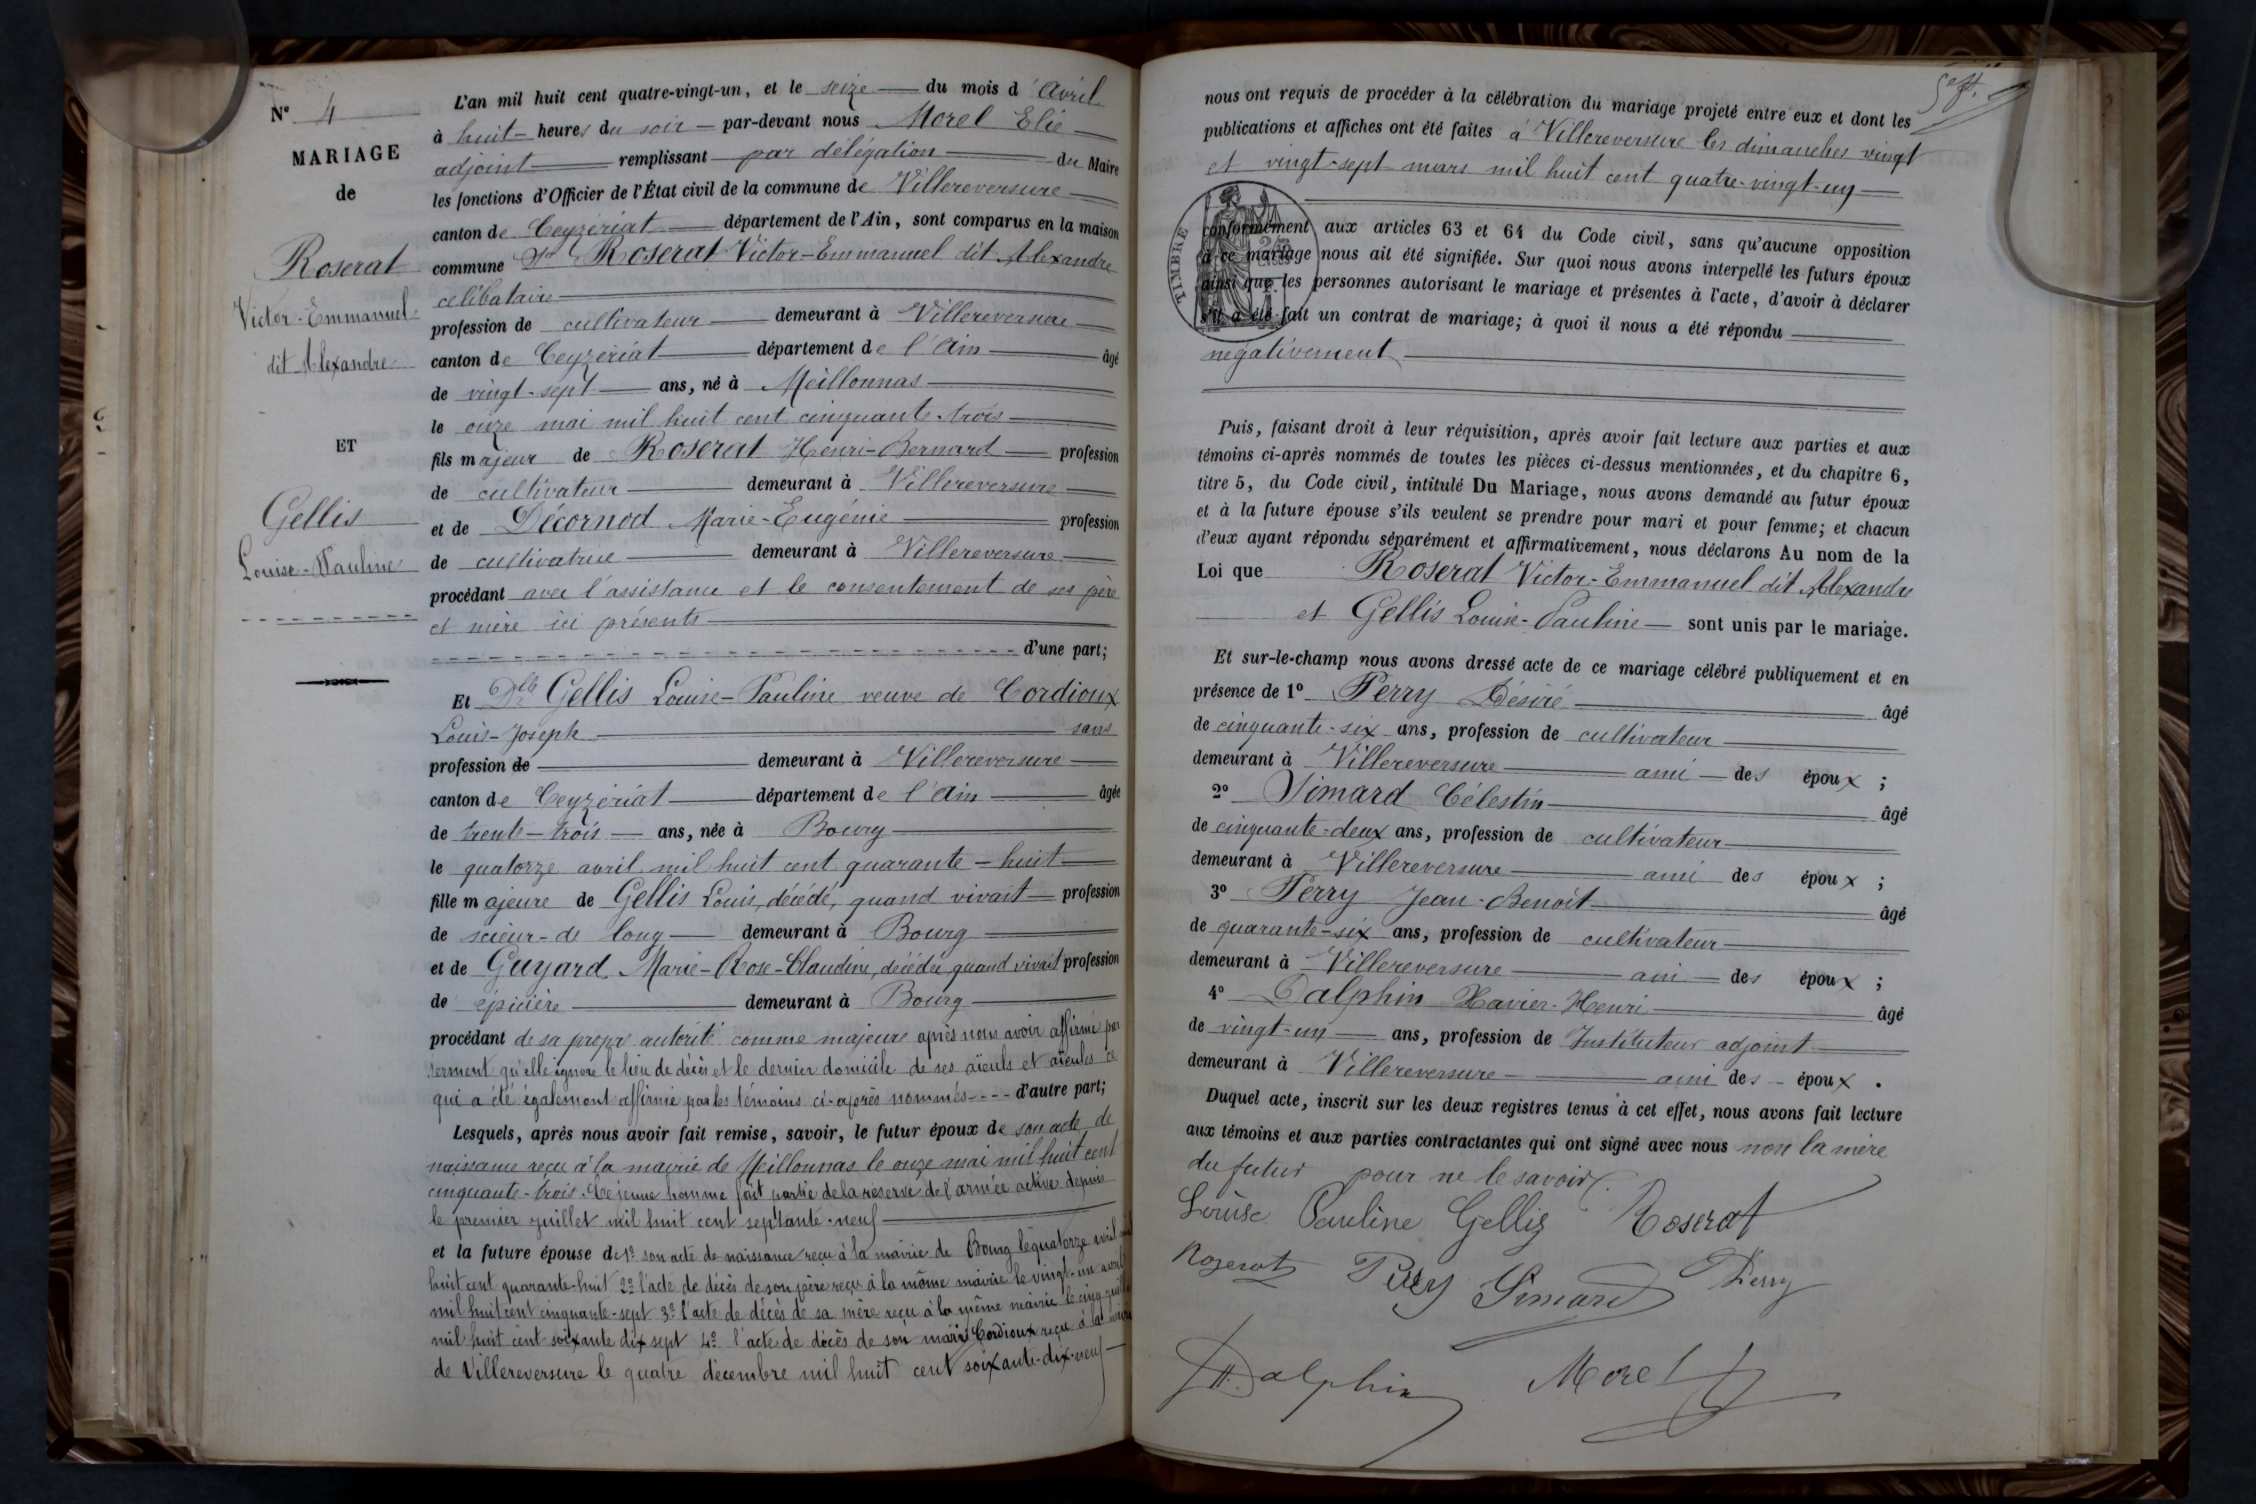 N° 4
MARIAGE
de
Roserat
Victor-Emmanuel
dit Alexandre
ET
Gellis
Louise-Pauline
L'an mil huit cent quatre-vingt-un, et le seize du mois d'Avril
à huit heures du soir par-devant nous Morel Elie
adjoint remplissant par délégation du Maire
les fonctions d'Officier de l'État civil de la commune de Villereversure
canton de Ceyzériat département de l'Ain, sont comparus en la maison
commune Sr Roserat Victor-Emmanuel dit Alexandre
célibataire
profession de cultivateur demeurant à Villereversure
canton de Ceyzériat département de l'Ain âgé
de vingt-sept ans, né à Meillonnas
le onze mai mil huit cent cinquante-trois
fils majeur de Roserat Henri-Bernard profession
de cultivateur demeurant à Villereversure
et de Décornod Marie-Eugénie profession
de cultivatrice demeurant à Villereversure
procédant avec l'assistance et le consentement de ses père
et mère ici présents
d'une part;
Et Dlle Gellis Louise-Pauline veuve de Cordioux
Louis-Joseph sans
profession de demeurant à Villereversure
canton de Ceyzériat département de l'Ain âgée
de trente-trois ans, née à Bourg
le quatorze avril mil huit cent quarante-huit
fille majeure de Gellis Louis, décédé, quand vivait profession
de scieur-de long demeurant à Bourg
et de Guyard Marie-Rose-Claudine, décédée quand vivait profession
de épicière demeurant à Bourg
procédant de sa propre autorité comme majeure après nous avoir affirmé par
serment qu'elle ignore le lieu de décès et le dernier domicile de ses aïeuls et aïeules ce
qui a été également affirmé par les témoins ci-après nommés d'autre part;
Lesquels, après nous avoir fait remise, savoir, le futur époux de son acte de
naissance reçu à la mairie de Meillonnas le onze mai mil huit cent
cinquante-trois. Ce jeune homme fait partie de la réserve de l'armée active depuis
le premier juillet mil huit cent septante-neuf
et la future épouse de 1° son acte de naissance reçu à la mairie de Bourg le quatorze avril mil
huit cent quarante-huit 2° l'acte de décès de son père reçu à la même mairie le vingt-un avril
mil huit cent cinquante-sept 3° l'acte de décès de sa mère reçu à la même mairie le cinq
mil huit cent soixante dix sept 4° l'acte de décès de son mari Cordioux reçu à la mairie
de Villereversure le quatre décembre mil huit cent soixante-dix-neuf
nous ont requis de procéder à la célébration du mariage projeté entre eux et dont les
publications et affiches ont été faites à Villereversure les dimanches vingt
et vingt-sept mars mil huit cent quatre-vingt-un
TIMBRE
conformément aux articles 63 et 64 du Code civil, sans qu'aucune opposition
à ce mariage nous ait été signifiée. Sur quoi nous avons interpellé les futurs époux
ainsi que les personnes autorisant le mariage et présentes à l'acte, d'avoir à déclarer
s'il a été fait un contrat de mariage; à quoi il nous a été répondu
négativement
Puis, faisant droit à leur réquisition, après avoir fait lecture aux parties et aux
témoins ci-après nommés de toutes les pièces ci-dessus mentionnées, et du chapitre 6,
titre 5, du Code civil, intitulé Du Mariage, nous avons demandé au futur époux
et à la future épouse s'ils veulent se prendre pour mari et pour femme; et chacun
d'eux ayant répondu séparément et affirmativement, nous déclarons Au nom de la
Loi que Roserat Victor-Emmanuel dit Alexandre
et Gellis Louise-Pauline sont unis par le mariage.
Et sur-le-champ nous avons dressé acte de ce mariage célébré publiquement et en
présence de 1° Perry Désiré âgé
de cinquante-six ans, profession de cultivateur
demeurant à Villereversure ami des époux ;
2° Simard Célestin âgé
de cinquante-deux ans, profession de cultivateur
demeurant à Villereversure ami des époux ;
3° Perry Jean-Benoît âgé
de quarante-six ans, profession de cultivateur
demeurant à Villereversure ami des époux ;
4° Dalphin Xavier-Henri âgé
de vingt-un ans, profession de Instituteur adjoint
demeurant à Villereversure ami des époux.
Duquel acte, inscrit sur les deux registres tenus à cet effet, nous avons fait lecture
aux témoins et aux parties contractantes qui ont signé avec nous non la mère
du futur pour ne le savoir.
Louise Pauline Gellis Roserat
Roserat Perry Simard Perry
H. Dalphin Morel